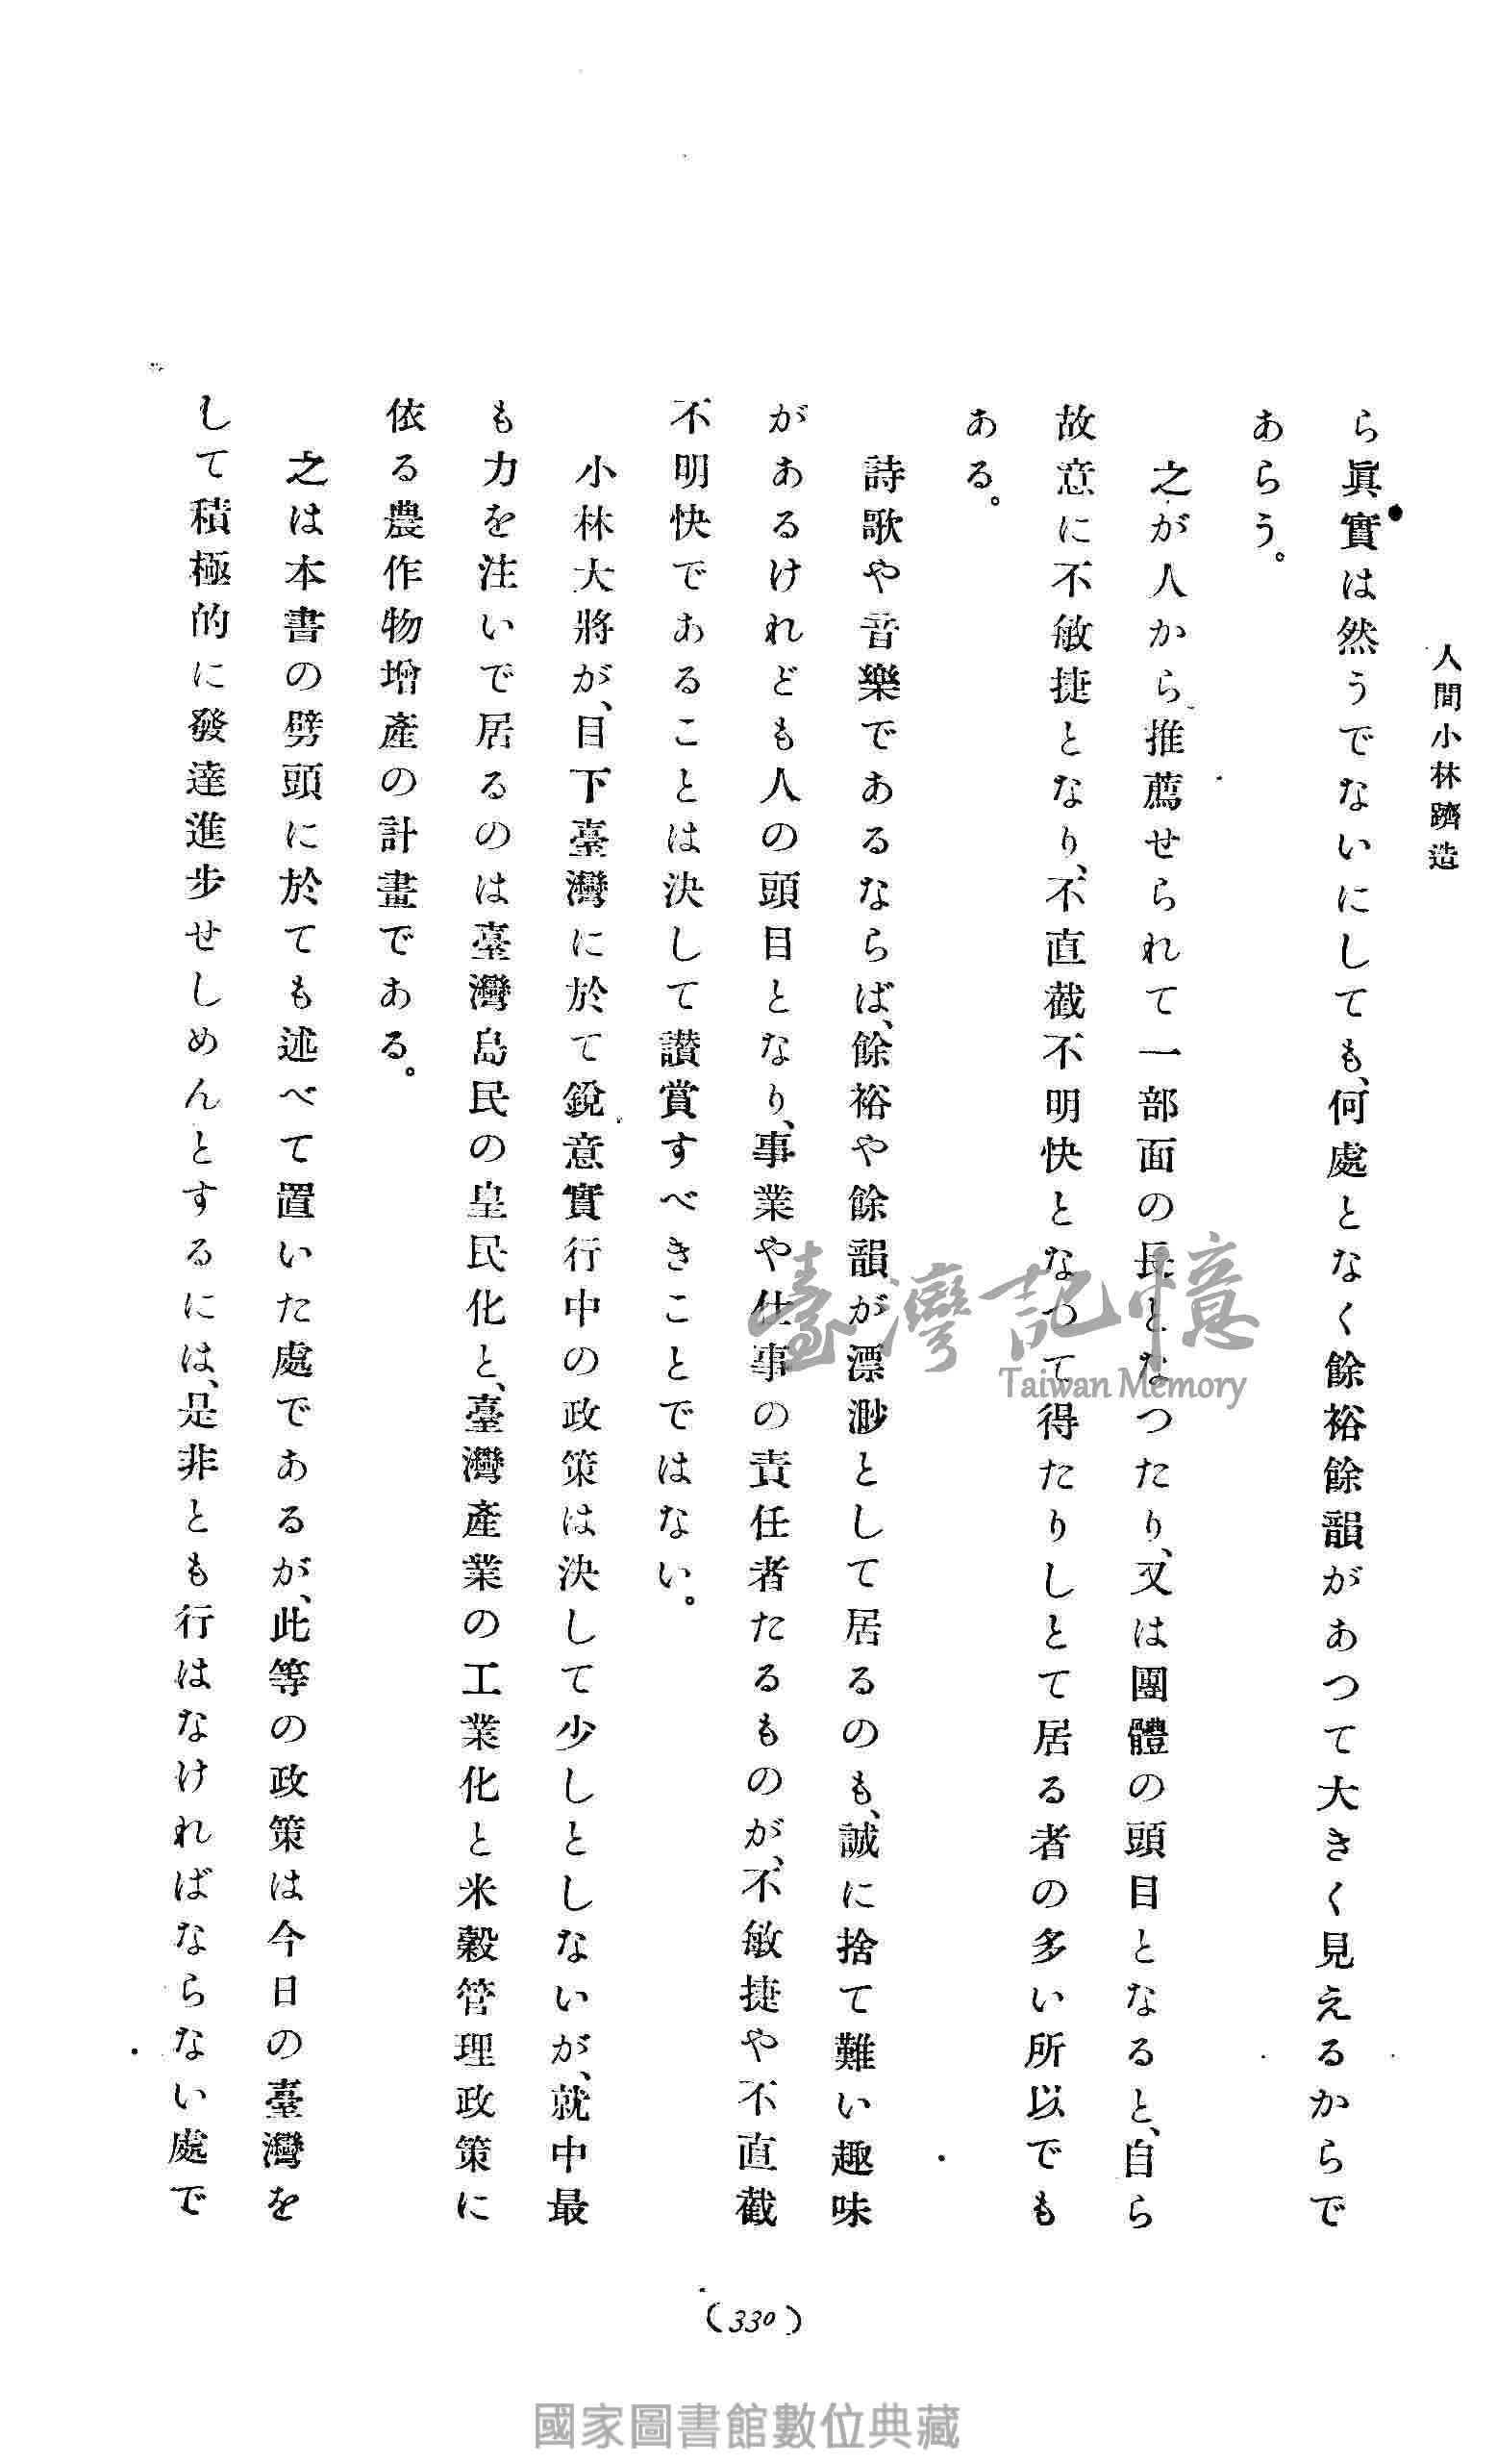 人間小林躋造
ら眞實は然うでないにしても、何處となく餘裕餘韻があつて大きく見えるからで
あらう。
之が人から推薦せられて一部面の長となつたり、又は團體の頭目となると、自ら
故意に不敏捷となり、不直截不明快となつて得たりしとて居る者の多い所以でも
ある。
詩歌や音樂であるならば、餘裕や餘韻が漂渺として居るのも、誠に捨て難い趣味
があるけれども人の頭目となり、事業や仕事の責任者たるものが、不敏捷や不直截
不明快であることは決して讃賞すべきことではない。
小林大將が、目下臺灣に於て鋭意實行中の政策は決して少しとしないが、就中最
も力を注いで居るのは臺灣島民の皇民化と、臺灣產業の工業化と米穀管理政策に
依る農作物增產の計畫である。
之は本書の劈頭に於ても述べて置いた處であるが、此等の政策は今日の臺灣を
して積極的に發達進步せしめんとするには、是非とも行はなければならない處で
(330)
臺灣記憶
Taiwan Memory
國家圖書館數位典藏